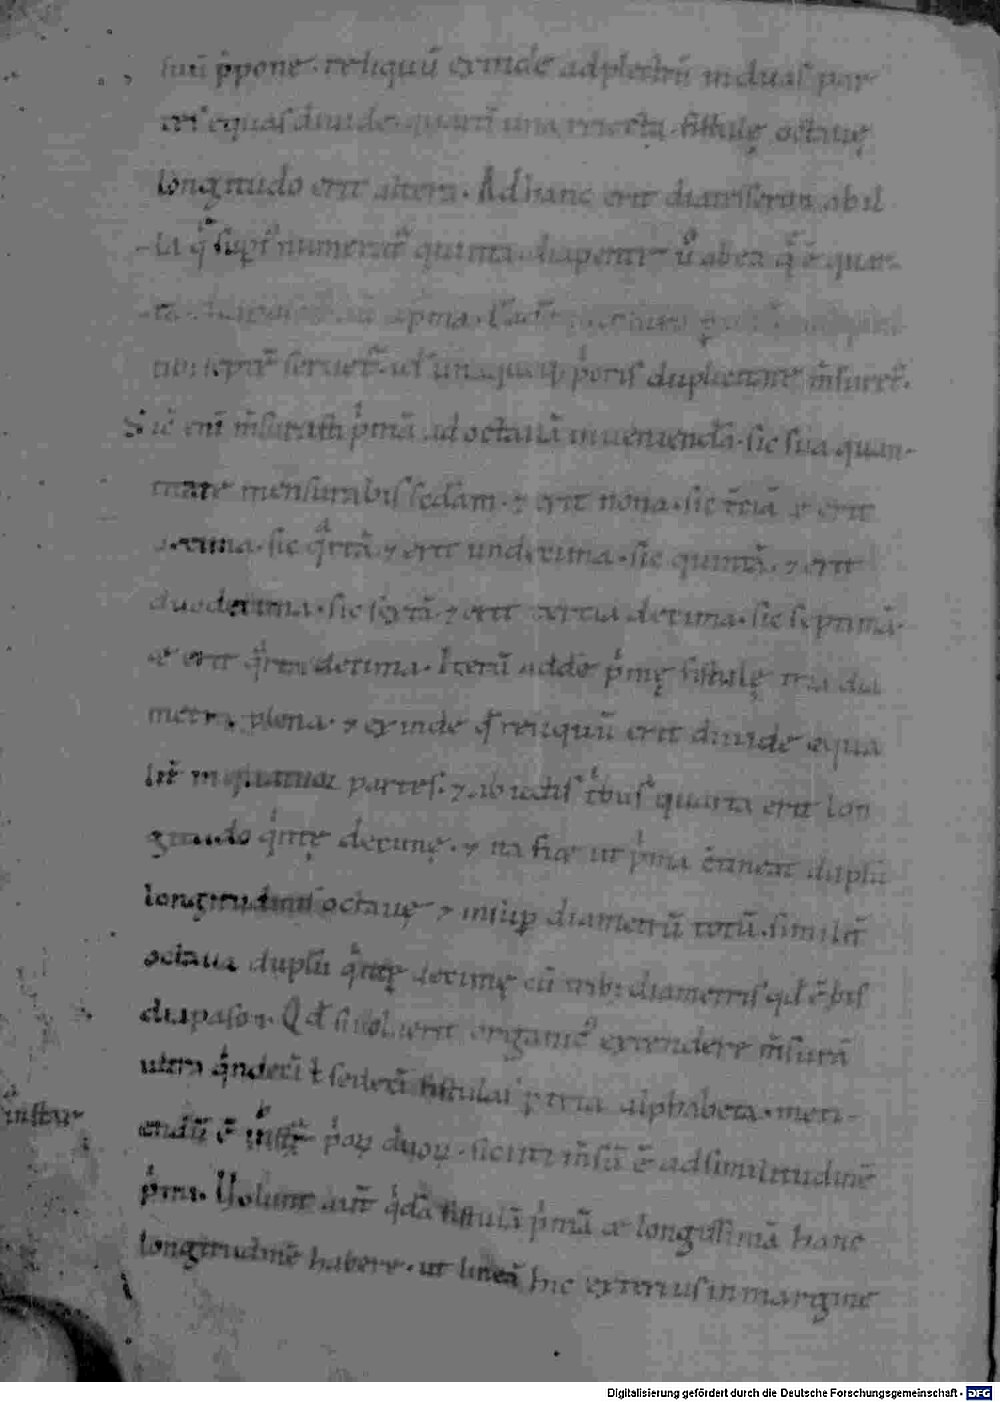 suũ ṗpone. reliquũ exinde ad plectrũ in duas par
tes equas diuide. quarũ una reiecta. fistulę octauę
longitudo erit altera. Ad hanc erit diatesseron ab il
la q̃ sup̃ numerat̃ quinta. diapente ũ ab ea q̃ ẽ quar
ta. p̃ma.
seruet̃. ut unaquęq; p̃oris duplicatione m̃suret̃.
Sic eni m̃surasti p̃mã ad octauã inueniendã. sic sua quan
titate mensurabis sedam. ⁊ erit nona. sic t̃ciã ⁊ erit
decima. sic q̃rtã ⁊ erit undecima. sic quintã. ⁊ erit
duodecima. sic sextã. ⁊ erit tercia decima. sic septimã.
⁊ erit q̃rta decima. Iterũ adde p̃mę fistulę tria dia
metra plena. ⁊ exinde qđ reliquũ erit diuide equa
lit̃ in quatuor partes. ⁊ abiectis t̃bus quarta erit lon
gitudo q̃ntę decimę. ⁊ ita fiet ut p̃ma c̃tineat duplũ
longitudinis octauę ⁊ insup̱ diametrũ totũ. similit̃
octaua duplũ q̃ntę decimę cũ trib; diametris qđ ẽ bis
diapason. Qđ si uoluerit organicꝰ extendere m̃surã
ultra q̃ndeci ł sedeci fistulas p tria alphabeta. meti-
endũ ẽ instar p̃oꝝ duoꝝ. sicut m̃sũ ẽ ad similitudinẽ
instar
p̃mi. Uolunt aut̃ q̃dã fistulã p̃mã ⁊ longissimã hanc
longitudinẽ habere. ut lineã hic exterius in margine
Digitalisierung gefördert durch die Deutsche Forschungsgemeinschaft - DFG